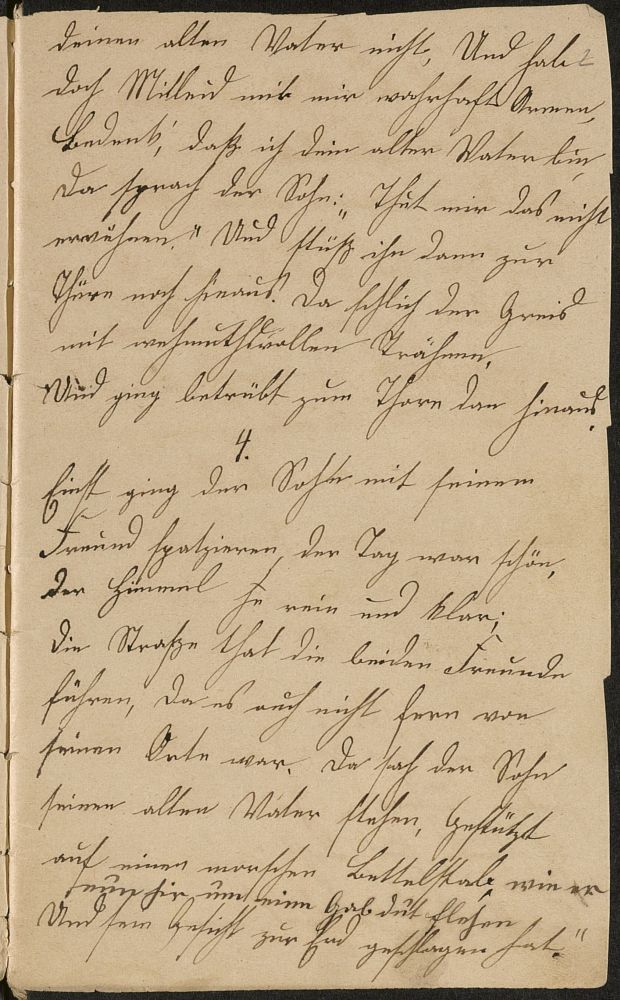 deinen alten Vater nicht, Und hab 2
doch Mitleid mit mir wahrhaft Armen,
Bedenk', daß ich dein alter Vater bin
Da sprach der Sohn: "Thut mir das nicht
erwähnen." Und stüß ihn dann zur
Thüre noch hinaus. Da schlich der Greis
mit wehmuthsvollen Trähnen,
Und ging betrübt zum Thore dan hinaus.
4.
Einst ging der Sohn mit seinem
Freund spatzieren, der Tag war schön,
der Himmel so rein und klar;
die Straße that die beiden Freunde
führen, da es auch nicht fern von
seinen Orte war. Da sah der Sohn
seinen alten Vater stehen, Gestützt
auf einen morschen Bettelstab, wie er
nun hir um eine Gab dut flehen
Und sein Gesicht zur Erd geschlagen hat."